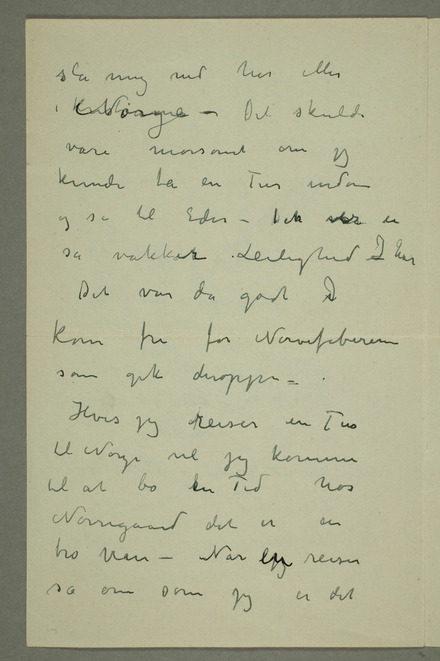 slå mig ned her eller
i Norge – Det skulde
være morsomt om jeg
kunde ta en Tur indom
og så til Eder – Det er
så vakker Leilighed I har
Det var da godt I
kom fri for Nervefeberen
som gik deroppe –
Hvis jeg reiser en Tur
til Norge vil jeg komme
til at bo en Tid hos
Nørregaard det er en
bra Man – Når jeg reiser
så om som jeg er det